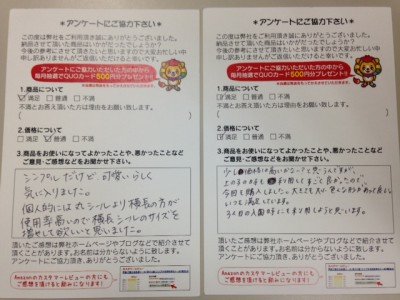 ＊アンケートにご協力下さい＊
この度は弊社をご利用頂き誠にありがとうございました。
納品させて頂いた商品はいかがだったでしょうか？
今後の参考にさせて頂きたいと思いますので大変お忙しい中
申し訳ありませんがご返信いただけると幸いです。
アンケートにご協力いただいた方の中から
毎月抽選でQUOカード500円分プレゼント!!
1.商品について
満足 □普通 □不満
不満とお答え頂いた方は理由をお願い致します。
2.価格について
□満足 普通 □不満
3.商品をお使いになってよかったことや、悪かったことなど
ご意見・ご感想などをお聞かせ下さい。
シンプルだけど可愛いらしく
気に入りました。
個人的には丸シールより横長の方が
使用率高いので横長シールのサイズを
増やして欲しいと思いました。
頂いたご感想は弊社ホームページやブログなどで紹介させて
頂くことがあります。お名前が分からないように致します。
アンケートにご協力頂き、ありがとうございました。
Amazonのカスタマーレビューの方にも
ご感想を頂けると励みになります!
＊アンケートにご協力下さい＊
この度は弊社をご利用頂き誠にありがとうございました。
納品させて頂いた商品はいかがだったでしょうか？
今後の参考にさせて頂きたいと思いますので大変お忙しい中
申し訳ありませんがご返信いただけると幸いです。
アンケートにご協力いただいた方の中から
毎月抽選でQUOカード500円分プレゼント!!
1.商品について
満足 □普通 □不満
不満とお答え頂いた方は理由をお願い致します。
2.価格について
満足 □普通 □不満
3.商品をお使いになってよかったことや、悪かったことなど
ご意見・ご感想などをお聞かせ下さい。
少し価格は高いかなって思うんですが、
上の子の時もすごく良かったので
今回も購入しました。
いつも満足しています。
3人目の入園時にもまた利用しようと思います。
頂いたご感想は弊社ホームページやブログなどで紹介させて
頂くことがあります。お名前が分からないように致します。
アンケートにご協力頂き、ありがとうございました。
Amazonのカスタマーレビューの方にも
ご感想を頂けると励みになります!